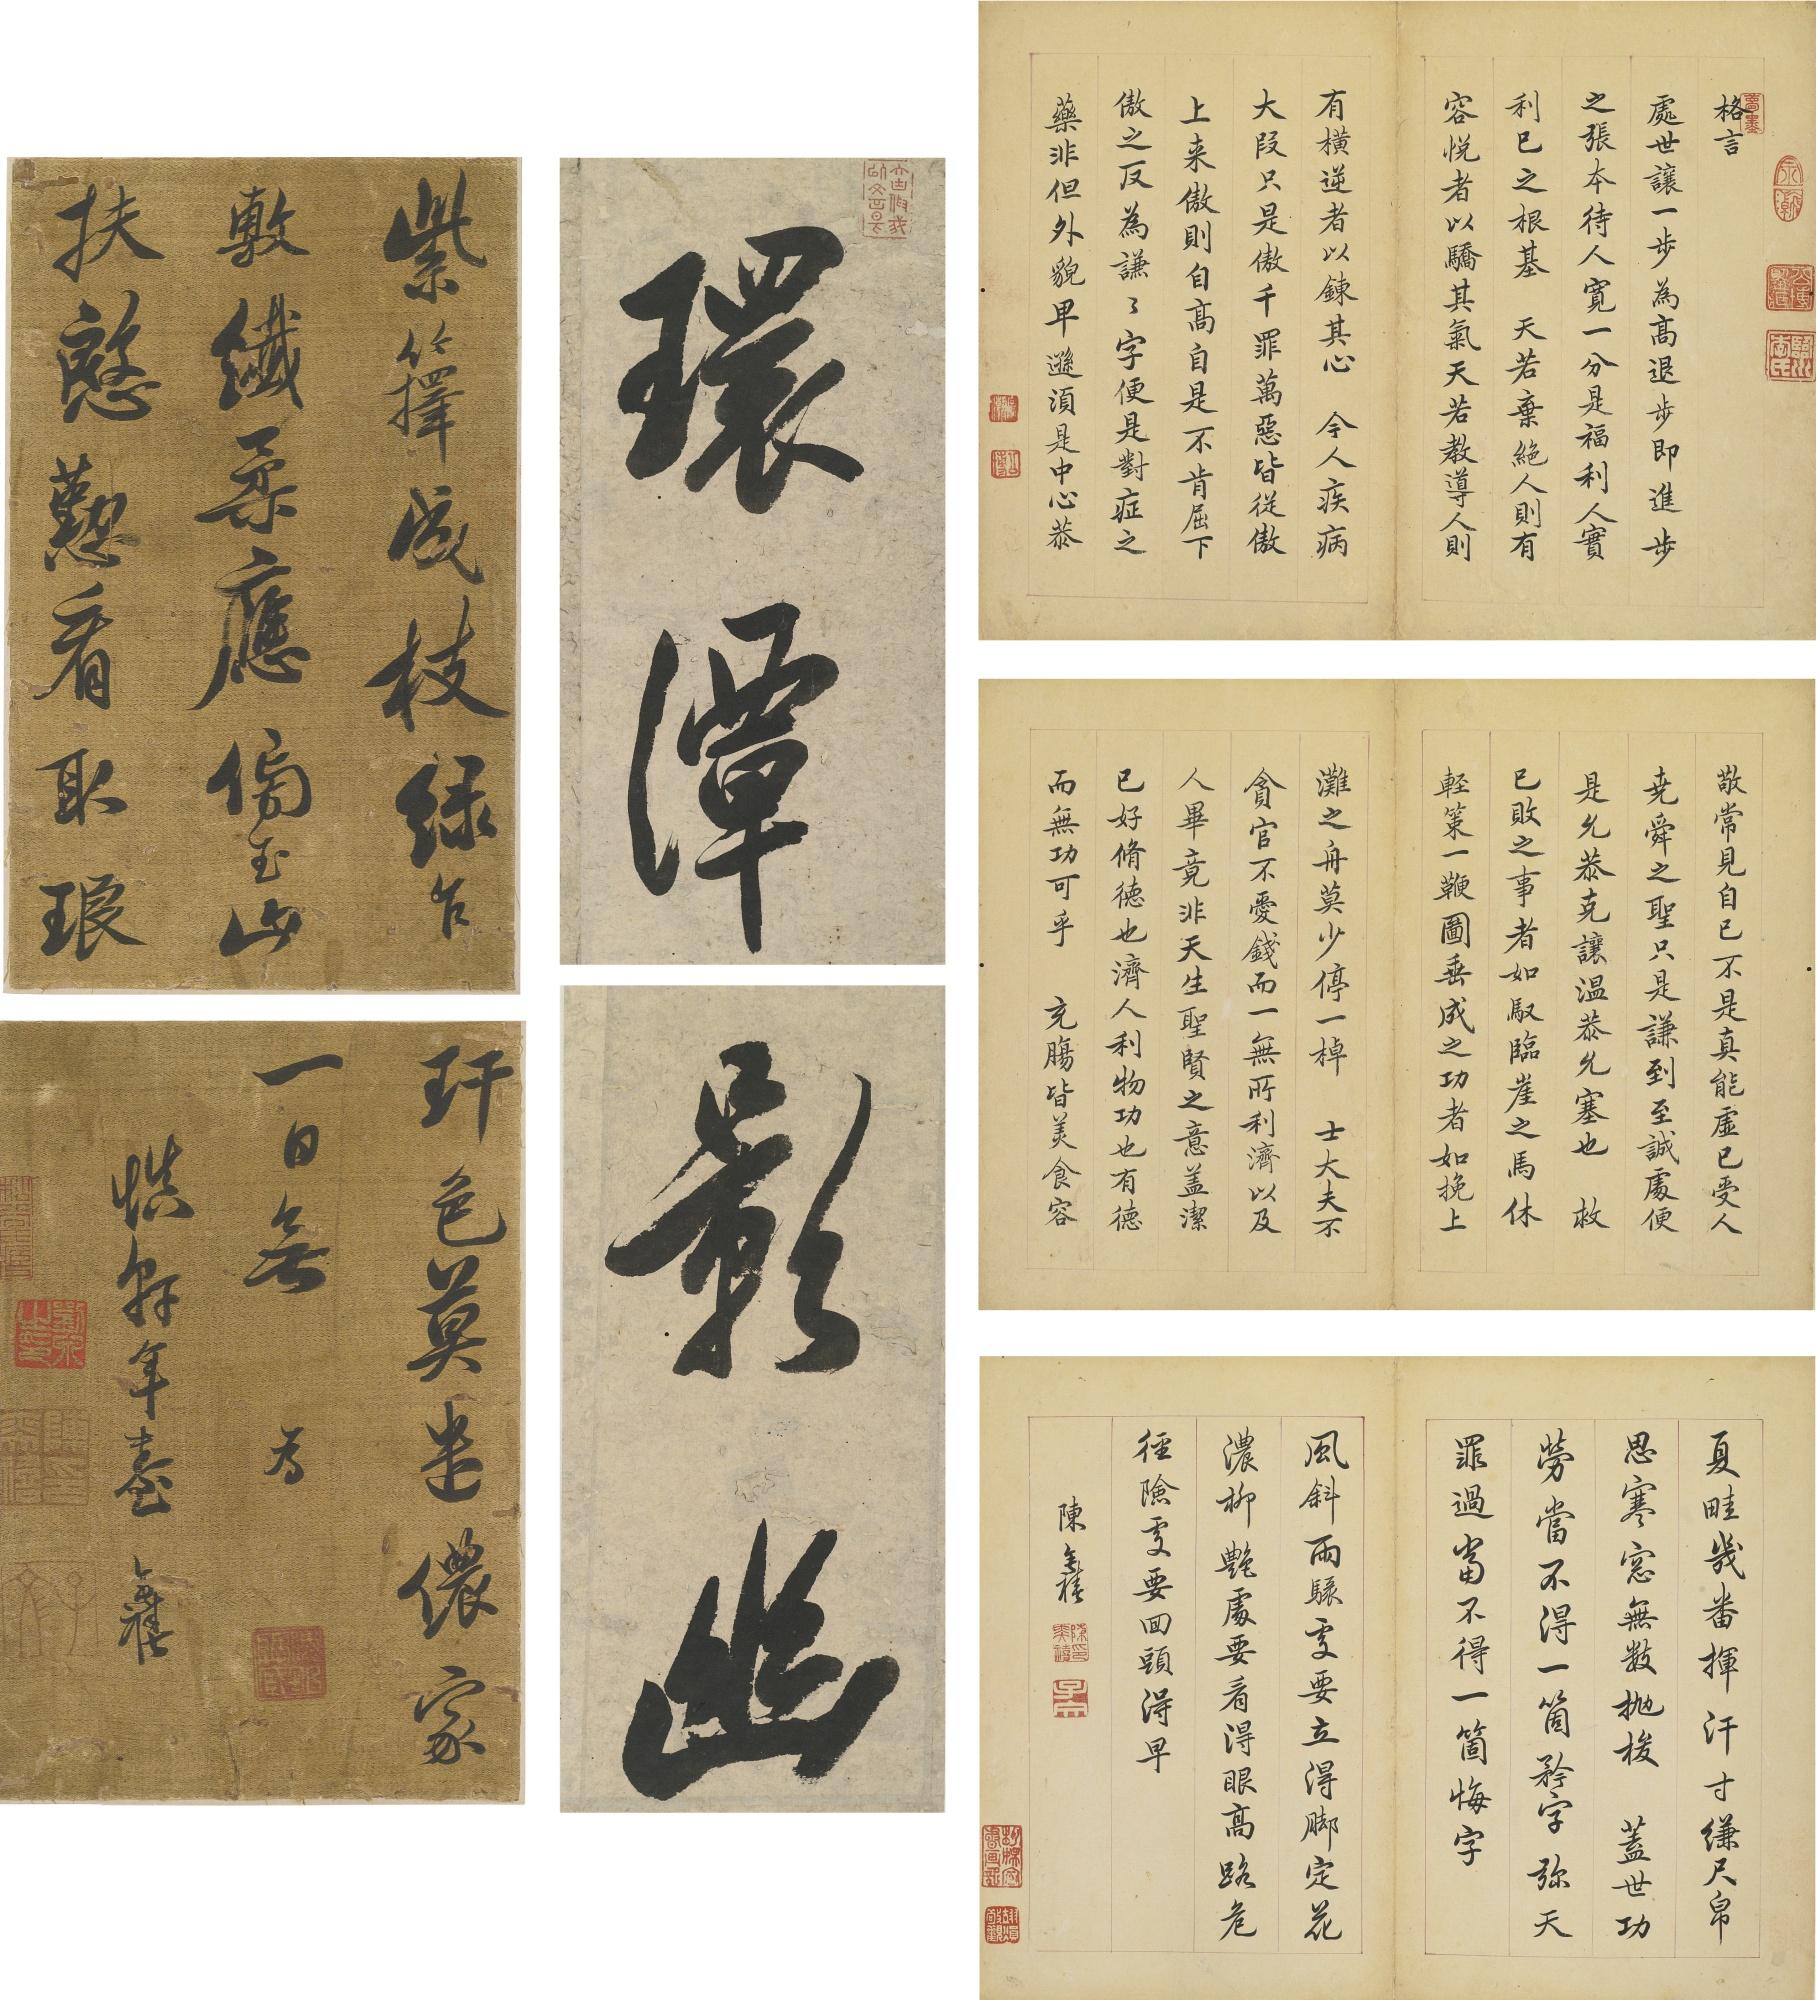 格言
處世讓一步為高退步即進步
之張本待人寬一分是福利人實
利已之根基 天若棄絶人則有
容悅者以驕其氣天若教導人則
有橫逆者以鍊其心 今人疾病
大段只是傲千罪萬惡皆從傲
上来傲則自高自是不肯屈下
傲之反為謙々字便是對症之
藥非但外貌卑遜須是中心恭
敬常見自已不是真能虛已受人
堯舜之聖只是謙到至誠處便
是允恭克讓温恭允塞也 救
已敗之事者如馭臨崖之馬休
輕策一鞭圖垂成之功者如挽上
灘之舟莫少停一棹 士大夫不
貪官不愛錢而一無所利濟以及
人畢竟非天生聖賢之意盖潔
已好脩德也濟人利物功也有德
而無功可乎 充腸皆美食容
夏畦幾番揮汗寸縑尺帛
思寒窓無數拋梭 蓋世功
勞當不得一箇矜字弥天
罪過當不得一箇悔字
風斜雨驟処要立得脚定花
濃柳艷處要看得眼高路危
徑險処要回頭得早
陳奕禧
環潭
影幽
紫籜成枝綠乍
敷纖柔應傍玉山
扶慇懃看取琅
玕色莫遣儂家
一日無 為
慎躬年臺 奕禧